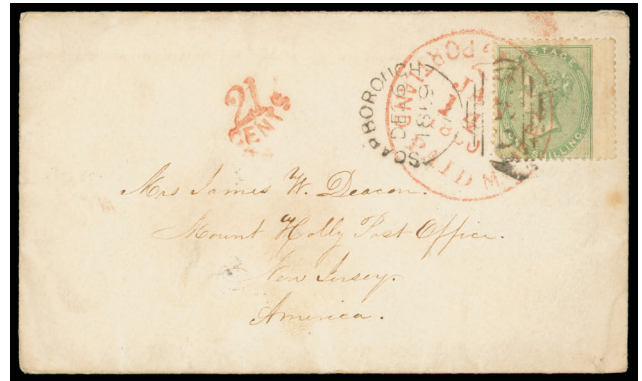 21
CENTS
SCARBOROUGH
DE 18
PORTLAND
PAID
POSTAGE
Mrs James W. Deacon.
Mount Holly Post Office.
New Jersey.
America.